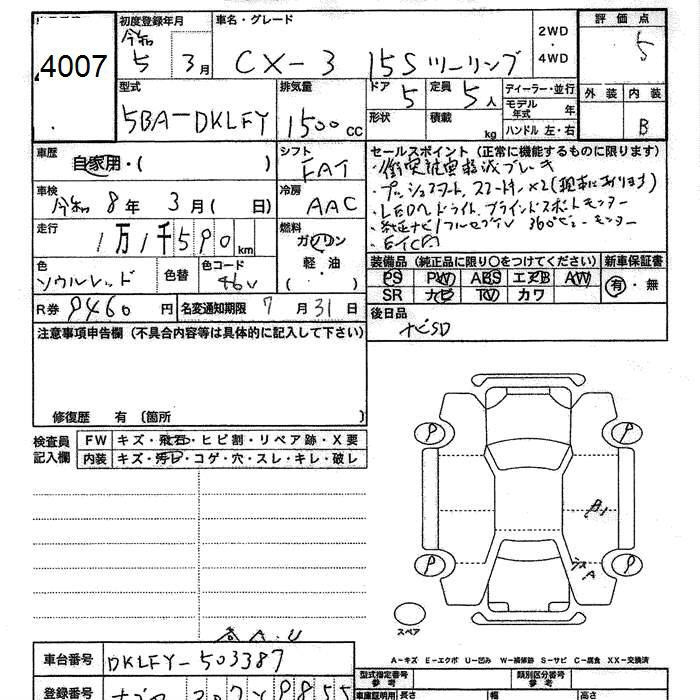 4007
初度登録年月
令和
5 3月
車名・グレード
CX-3 15Sツーリング
2WD
・
4WD
評価点
5
外装 内装
B
型式
5BA-DKLFY
排気量
1500cc
ドア
5
定員
5人
形状
積載
kg
ディーラー・並行
モデル年式 年
ハンドル 左・右
車歴
自家用・( )
シフト
FAT
車検
令和 8年 3月( 日)
冷房
AAC
走行
1万1千590km
燃料
ガソリン
軽・油
・( )
色
ソウルレッド
色替
色コード
46V
R券 9460円
名変通知期限 7月31日
セールスポイント (正常に機能するものに限ります)
・衝突被害軽減ブレーキ
・プッシュスタート スマートキー×2(現車にあります)
・LEDヘッドライト ブラインドスポットモニター
・純正ナビ/フルセグTV 360°ビューモニター
・ETC
装備品 (純正品に限り○をつけてください)
新車保証書
PS PW ABS エアB AW
SR ナビ TV カワ
有・無
後日品
ナビSD
注意事項申告欄 (不具合内容等は具体的に記入して下さい)
修復歴 有 〔箇所 〕
検査員
記入欄
FW キズ・飛石・ヒビ割・リペア跡・X要
内装 キズ・汚レ・コゲ・穴・スレ・キレ・破レ
P P
A1
A
P P
スペア
A.U
A-キズ E-エクボ U-凹み W-補修跡 S-サビ C-腐食 XX-交換済
車台番号 DKLFY-503387
登録番号
型式指定番号
参考
類別区分番号
参考
車庫証明用 長さ 幅 高さ